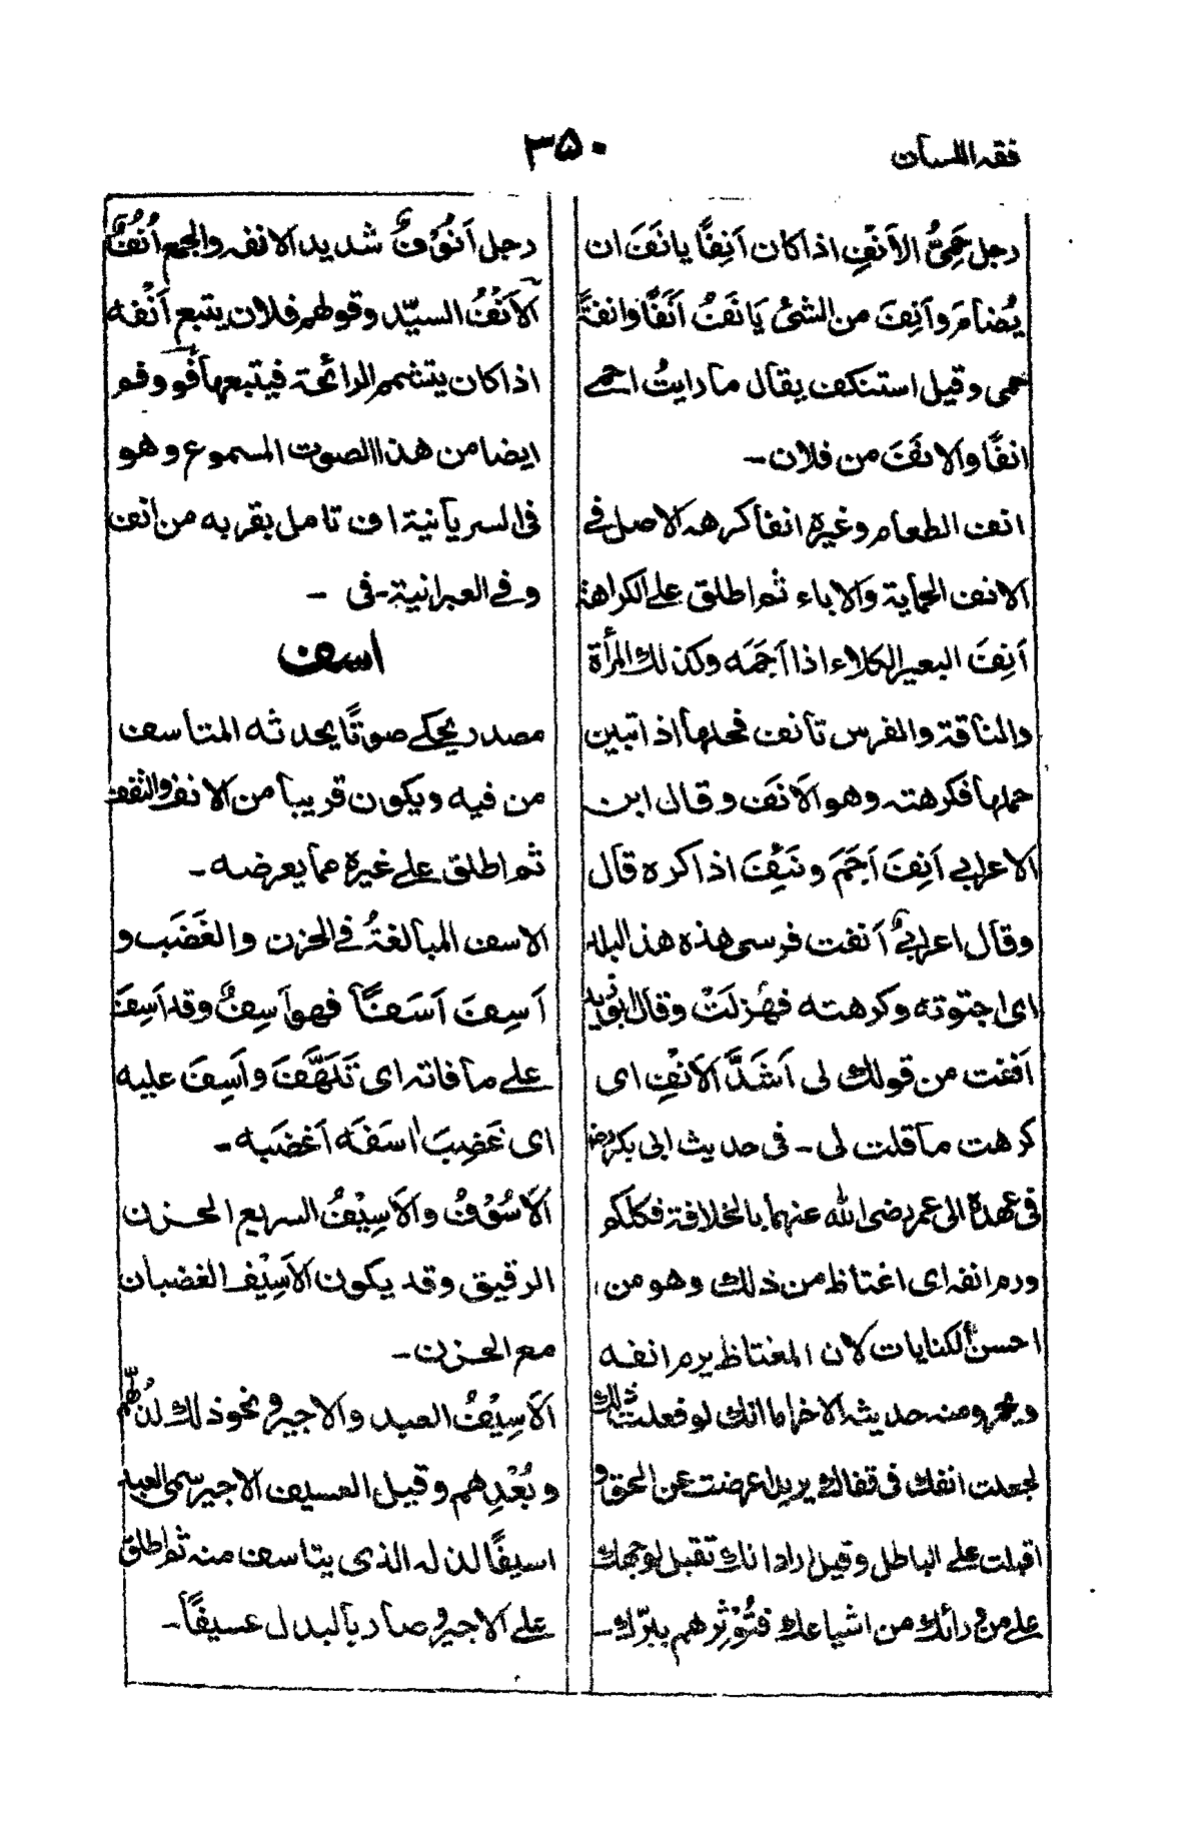 فقه اللسان
۳۵۰
رجل حَمِیُّ الاَنْفِ اذا كان اَنِفًا یانَفَ ان
یُضامَ واَنِفَ من الشئ یَانَفُ اَنَفًا وانفةً
حمی وقیل استنكف یقال ما رایتُ احمے
انفًا والا نَفَ من فلان-
انف الطعام وغیره انفا كرهه الاصل فے
الانف الحمایة والاباء ثم اطلق علے الكراهة
اَنِفَ البعیر الكلاء اذا اَجَمَه وكذلك المرأة
والناقة والفرس تأنف فحلها اذا تبین
حملها فكرهته وهو الاَنَف وقال ابن
الاعرابی اَنِفَ اَجَمَ ونَیِفَ اذا كره قال
وقال اعرابیٌ اَنفت فرسی هذه هذا البلد
ای اجتوته وكرهته فهُزِلَتْ وقال ابوزید
اَنفت من قولك لی اَشَدَّ الاَنْفِ ای
كرهت ما قلت لی - فی حدیث ابی بكر رض
فی عهده الی عمر رضی الله عنهما بالخلافة فكلكم
ورم انفه ای اغتاظ من ذلك وهو من
احسن الكنایات لان المغتاظ یرم انفه
ویحمر ومنه حدیثه الاخر اما انك لو فعلت ذلك
لجعلت انفك فی قفاك یرید اعرضت عن الحق و
اقبلت علے الباطل وقیل اراد انك تقبل بوجهك
علے من ورائك من اشیاعك فتُؤْثِرهم ببرّك-
رجل اَنُوْفٌ شدید الانفه والجمع اُنُفٌ
الاَنْفُ السیّد وقولهم فلان یتبع اَنْفه
اذا كان یتشمم الرائحة فیتبعها فو وفم
ایضا من هذا الصوت المسموع وهو
فی السریانیة اف تامل بقربه من انف
وفے العبرانیة-فی -
اسف
مصدر یحكے صوتًا یحدثه المتاسف
من فیه ویكون قریبا من الانف والثقف
ثم اطلق علے غیره مما یعرضه-
الاسف المبالغةُ فے الحزن والغَضَب و
اَسِفَ اَسَفًا فهو اَسِفٌ وقد اَسِفَ
علے ما فاته ای تَلَهَّفَ واَسِفَ علیه
ای غَضِبَ اٰسَفَه اَغضَبه-
اَلاَسُوْفُ والاَسِیْفُ السریع الحزن
الرقیق وقد یكون الاَسِیْف الغضبان
مع الحزن-
الاَسِیْفُ العبد والاجیر ونحو ذلك لذُلِّهم
وبُعْدِهم وقیل العسیف الاجیر سمی العبد
اسیفًا لذله الذی یتاسف منه ثم اطلق
علے الاجیر وصار بالبدل عسیفًا-